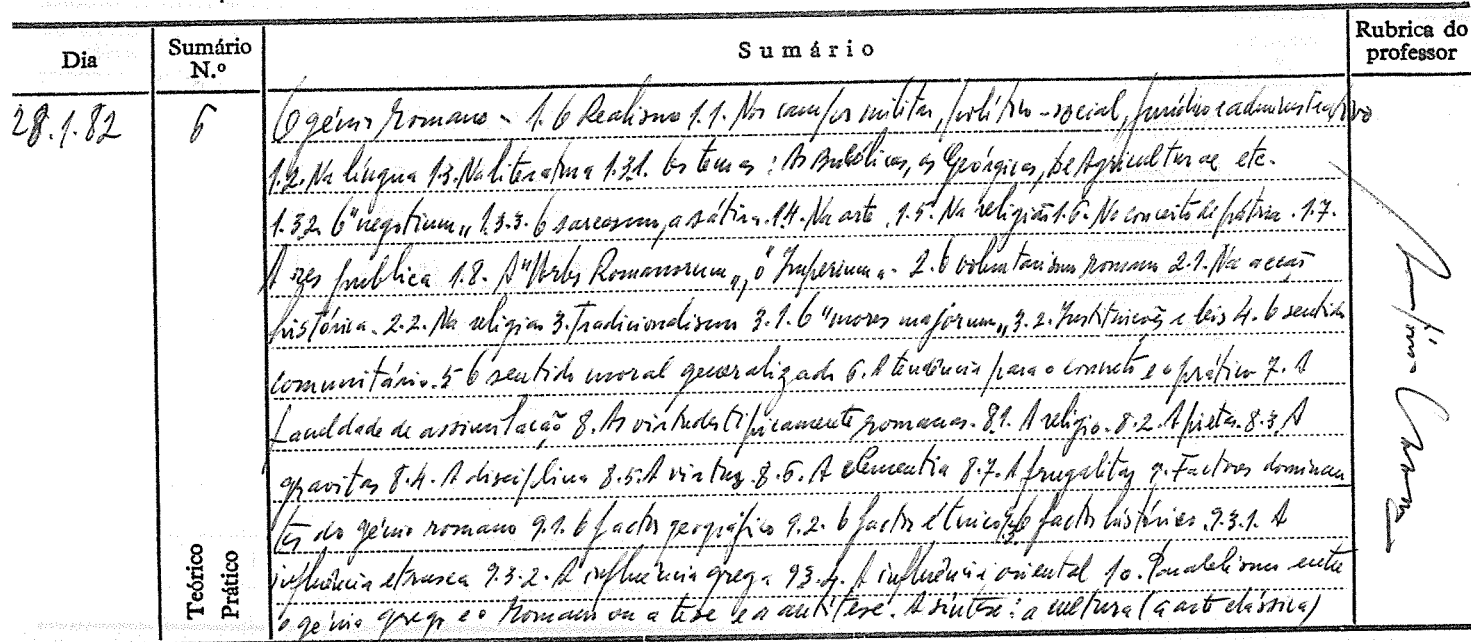 Dia
Sumário N.º
Sumário
Rubrica do professor
28.1.82
6
O génio Romano - 1. O Realismo 1.1. No campo militar, político-social, jurídico e administrativo
1.2. Na língua 1.3. Na literatura 1.3.1. Os temas: As Bucólicas, as Geórgicas, De Agriculturae etc.
1.3.2. O "negotium" 1.3.3. O sarcasmo, a sátira. 1.4. Na arte. 1.5. Na religião 1.6. No conceito de pátria. 1.7.
A res publica 1.8. A "Urbs Romanorum", o Imperium. 2. O voluntarismo romano 2.1. Na acção
histórica. 2.2. Na religião 3. Tradicionalismo 3.1. O "mores majorum" 3.2. Instituições e leis 4. O sentido
comunitário. 5 O sentido moral generalizado 6. A tendência para o concreto e o prático 7. A
faculdade de assimilação 8. As virtudes tipicamente romanas. 8.1. A religio. 8.2. A pietas. 8.3. A
gravitas 8.4. A disciplina 8.5. A virtus. 8.6. A clementia 8.7. A frugalitas 9. Factores dominan
tes do génio romano 9.1. O factor geográfico 9.2. O factor étnico 9.3. O factor histórico. 9.3.1. A
influência etrusca 9.3.2. A influência grega 9.3.3. A influência oriental 10. Paralelismo entre
o génio grego e o Romano ou a tese e a antítese. A síntese: a cultura (a arte clássica)
Teórico
Prático